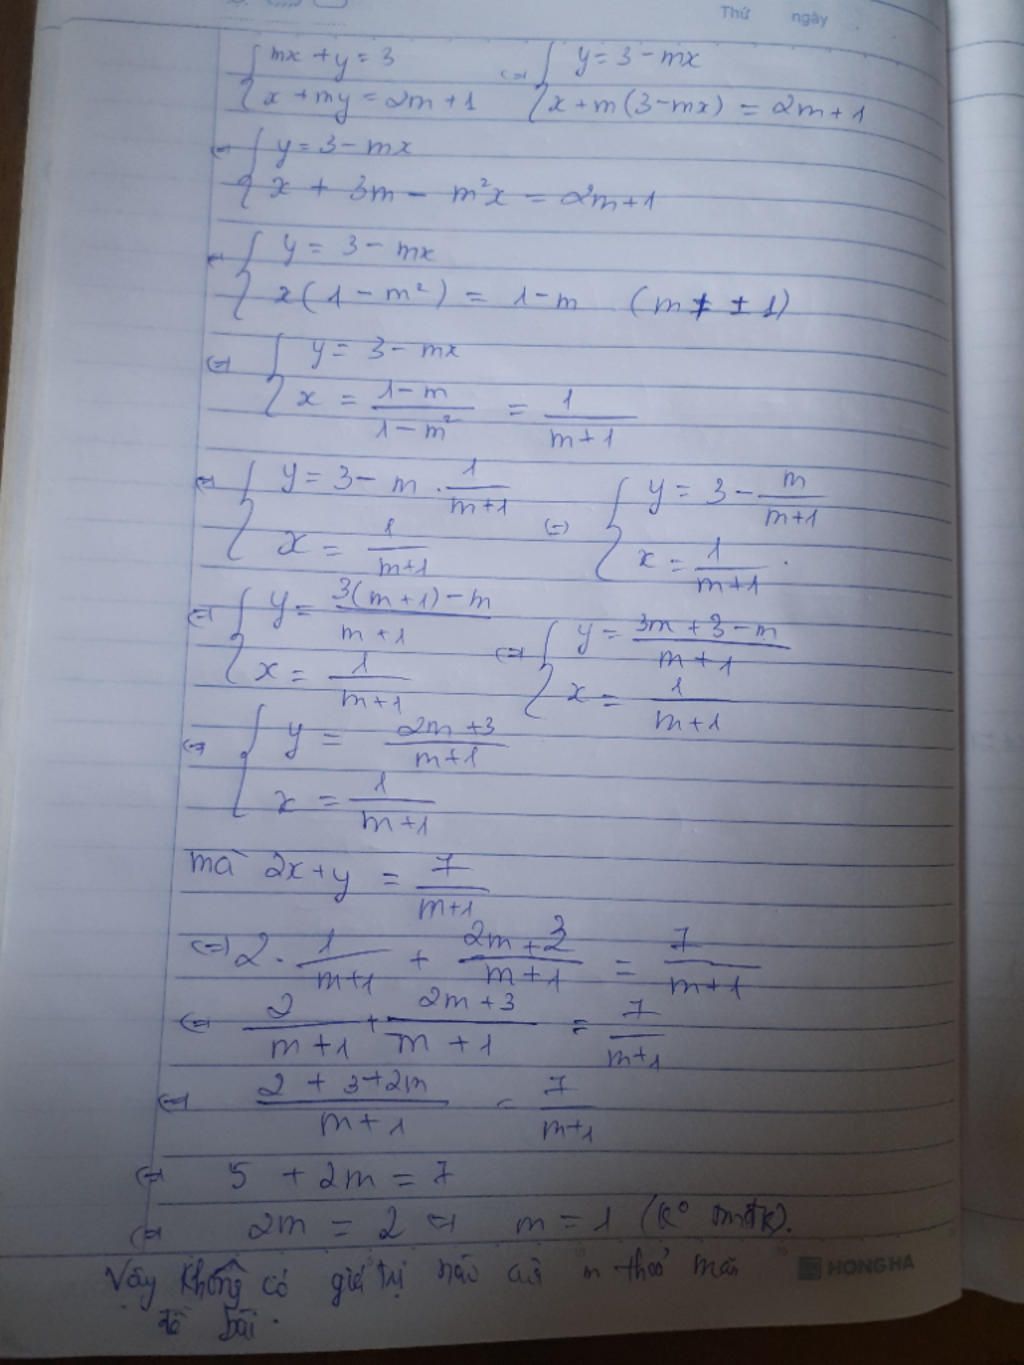 Thứ ngày
{ mx + y = 3 <=> { y = 3 - mx
{ x + my = 2m + 1 { x + m(3 - mx) = 2m + 1
<=> { y = 3 - mx
{ x + 3m - m²x = 2m + 1
<=> { y = 3 - mx
{ x(1 - m²) = 1 - m (m ≠ ± 1)
<=> { y = 3 - mx
{ x = (1 - m)/(1 - m²) = 1/(m + 1)
<=> { y = 3 - m . 1/(m + 1) <=> { y = 3 - m/(m + 1)
{ x = 1/(m + 1) { x = 1/(m + 1) .
<=> { y = (3(m + 1) - m)/(m + 1) <=> { y = (3m + 3 - m)/(m + 1)
{ x = 1/(m + 1) { x = 1/(m + 1)
<=> { y = (2m + 3)/(m + 1)
{ x = 1/(m + 1)
mà 2x + y = 7/(m + 1)
<=> 2 . 1/(m + 1) + (2m + 3)/(m + 1) = 7/(m + 1)
<=> 2/(m + 1) + (2m + 3)/(m + 1) = 7/(m + 1)
<=> (2 + 3 + 2m)/(m + 1) = 7/(m + 1)
<=> 5 + 2m = 7
<=> 2m = 2 <=> m = 1 (k° tmđk).
Vậy không có giá trị nào của m thoả mãn
đề bài.
HONG HA